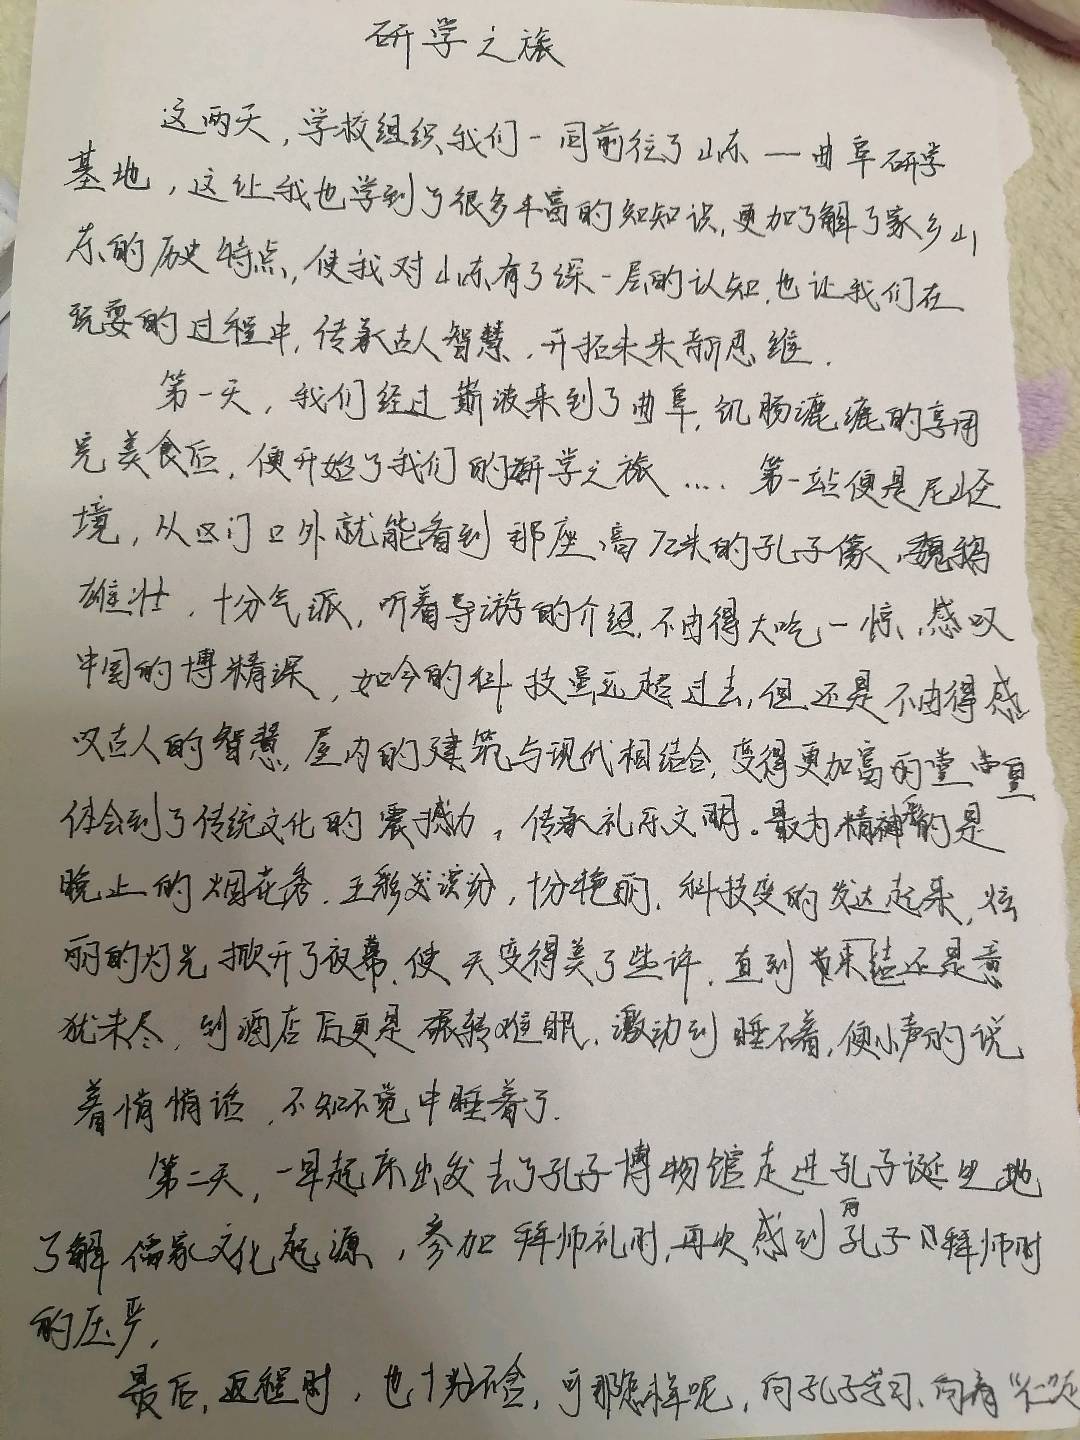 研学之旅
这两天，学校组织我们一同前往了山东一曲阜研学
基地，这让我也学到了很多丰富的知知识，更加了解了家乡山
东的历史特点，使我对山东有了深一层的认知，也让我们在
玩耍的过程中，传承古人智慧，开拓未来新思维．
第一天，我们经过奔波来到了曲阜，饥肠漉漉的享用
完美食后，便开始了我们的研学之旅．．．．第一站便是尼山圣
境，从门口外就能看到那座高72米的孔子像，巍峨
雄壮，十分气派，听着导游的介绍，不由得大吃一惊，感叹
中国的博精深，如今的科技虽远超过去，但还是不由得感
叹古人的智慧，屋内的建筑与现代相结合，变得更加富丽堂皇
体会到了传统文化的震撼力，传承礼乐文明。最为精神的是
晚上的烟花秀，五彩缤纷，十分艳丽，科技变的发达起来，炫
丽的灯光掀开了夜幕，使天变得美了些许，直到结还是意
犹未尽，到酒店后更是碾转难眠，激动到睡不着，便小声的说
着悄悄话，不知不觉中睡着了．
第二天，一早起床出发去了孔子博物馆走进孔子诞生地
了解儒家文化起源，参加拜师礼时，再次感到孔子拜师时
的压严，
最后，返程时，也十分不舍，可那怎样呢，向孔子学习、向着“仁”